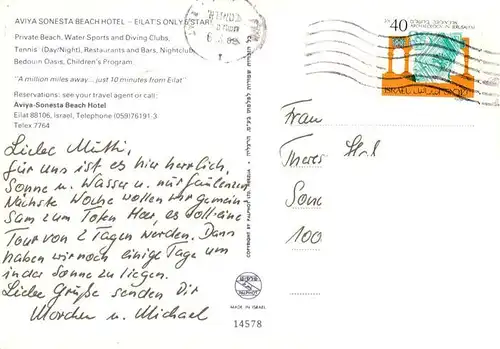 AVIYA SONESTA BEACH HOTEL – EILAT'S ONLY 5 STAR
Private Beach, Water Sports and Diving Clubs,
Tennis (Day/Night), Restaurants and Bars, Nightclub,
Bedouin Oasis, Children's Program
"A million miles away... just 10 minutes from Eilat"
Reservations: see your travel agent or call:
Aviya-Sonesta Beach Hotel
Eilat 88106, Israel, Telephone (059)76191-3
Telex 7764
Liebe Mutti,
für uns ist es hier herrlich,
Sonne u. Wasser u. nur faulenzen
Nächste Woche wollen wir gemein
sam zum Toten Meer, es soll eine
Tour von 2 Tagen werden. Dann
haben wir noch einige Tage um
in der Sonne zu liegen.
Liebe Grüße senden Dir
u. Michael
COPYRIGHT BY PALPHOT LTD.
PALPHOT
MADE IN ISRAEL
14578
40
ISRAEL
Frau
Theres
Sonc
100